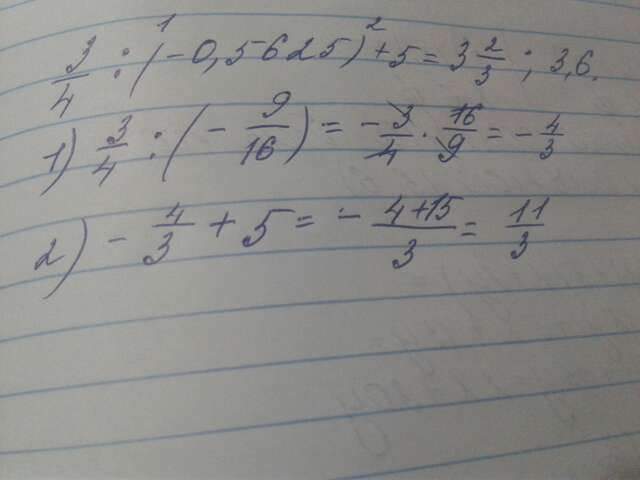 3/4 : (-0,5625) + 5 = 3 2/3 ; 3,6.
1) 3/4 : (- 9/16) = - 3/4 · 16/9 = - 4/3
2) - 4/3 + 5 = - 4+15/3 = 11/3